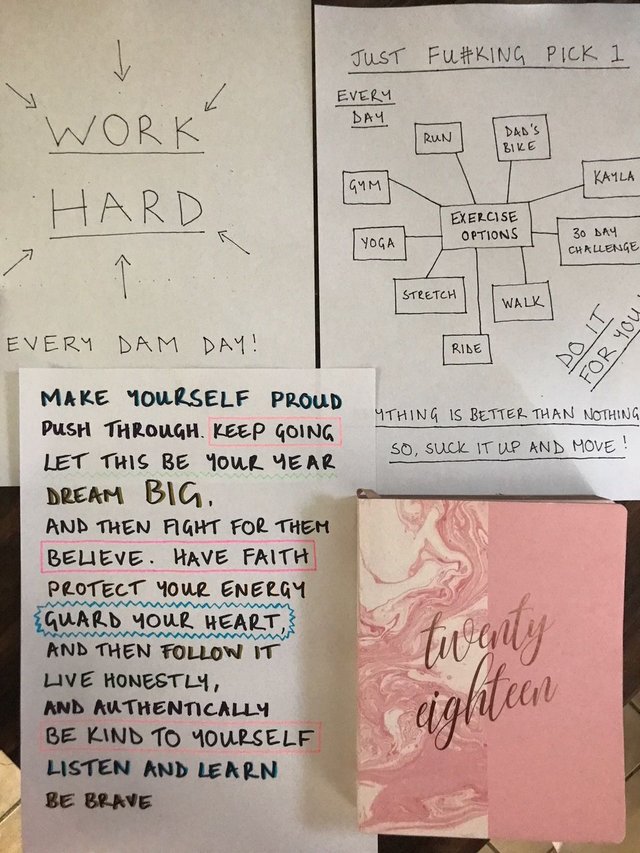 WORK
HARD
EVERY DAM DAY!
JUST FU#KING PICK 1
EVERY
DAY
RUN
DAD'S
BIKE
GYM
KAYLA
EXERCISE
OPTIONS
YOGA
30 DAY
CHALLENGE
STRETCH
WALK
RIDE
DO IT
FOR YOU
YTHING IS BETTER THAN NOTHING
SO, SUCK IT UP AND MOVE!
MAKE YOURSELF PROUD
PUSH THROUGH. KEEP GOING
LET THIS BE YOUR YEAR
DREAM BIG,
AND THEN FIGHT FOR THEM
BELIEVE. HAVE FAITH
PROTECT YOUR ENERGY
GUARD YOUR HEART,
AND THEN FOLLOW IT
LIVE HONESTLY,
AND AUTHENTICALLY
BE KIND TO YOURSELF
LISTEN AND LEARN
BE BRAVE
twenty
eighteen